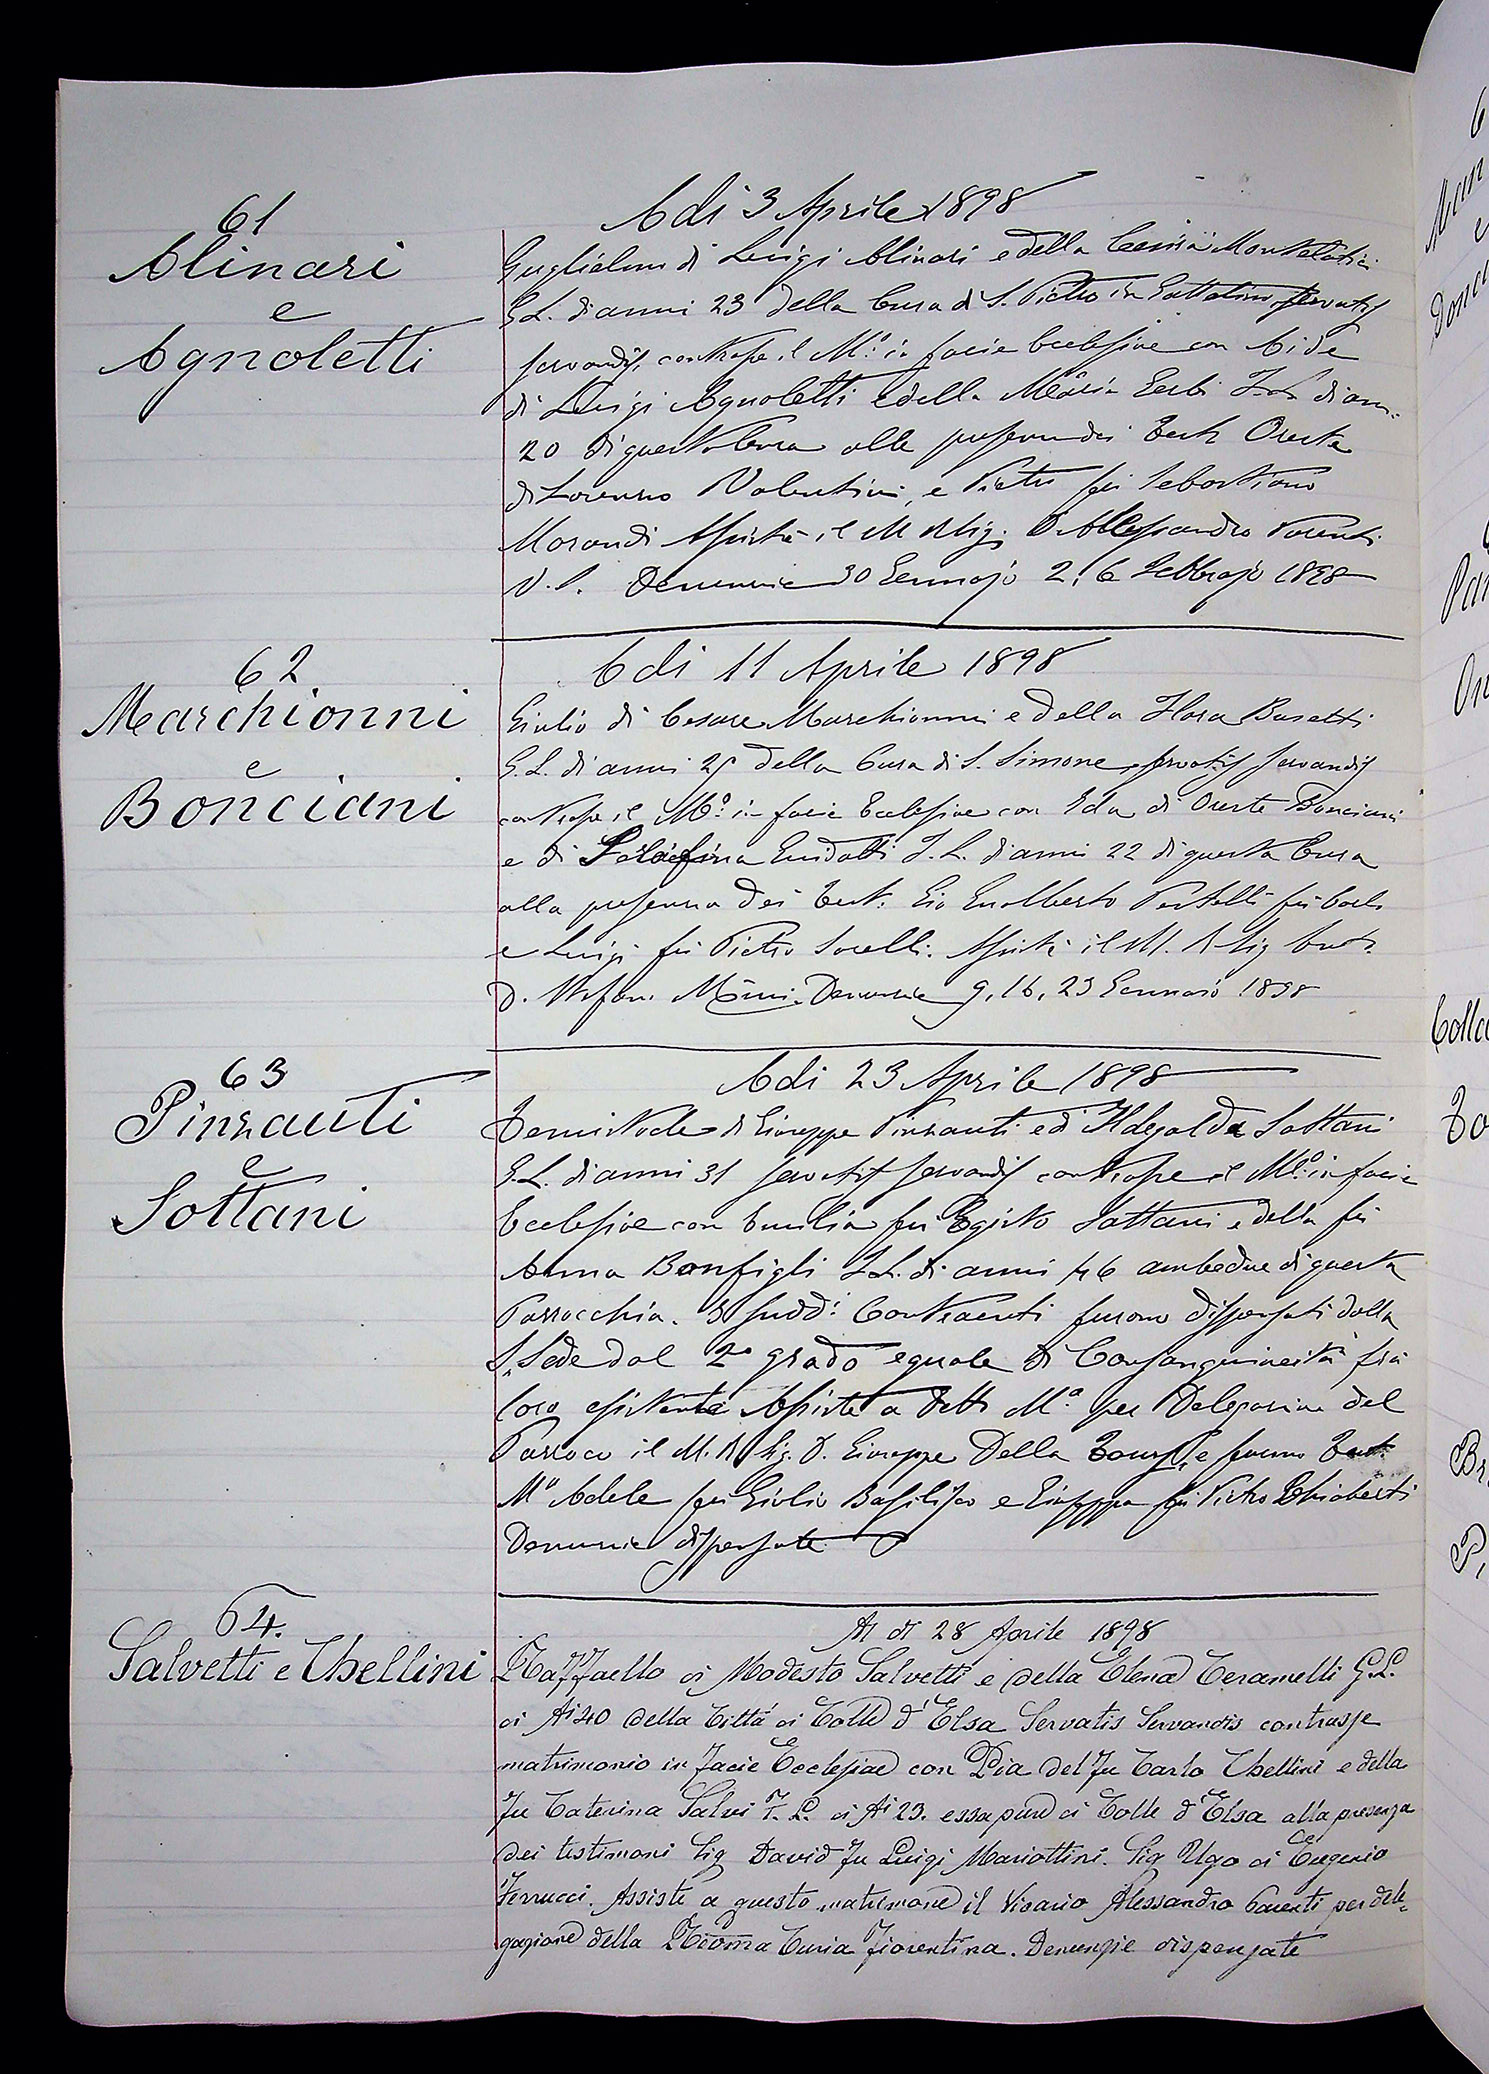 61
Alinari
e
Agnoletti
Adi 3 Aprile 1898
Guglielmo di Luigi Alinari e della Cesira Montelatici
G.L. di anni 23 della Cura di S. Pietro in Gattolino, servatis
servandis, contrasse il Mo: in facie Ecclesiae con Aida
di Luigi Agnoletti e della Maria Gerbi F.L. di an:
20 di questa Cura alla presenza dei Test. Oreste
di Lorenzo Valentini, e Pietro fu Sebastiano
Morandi Assistè il M R Sig. D Alessandro Parenti
V.P. Denunzie 30 Gennajo 2, 6 Febbrajo 1898
62
Marchionni
e
Bonciani
Adi 11 Aprile 1898
Giulio di Cesare Marchionni e della Flora Busetti
G.L. di anni 25 della Cura di S. Simone, servatis servandis
contrasse il Mo: in facie Ecclesiae con Ida di Oreste Bonciani
e di Serafina Guidotti F.L. di anni 22 di questa Cura
alla presenza dei Test. Gio Gualberto Pestelli fu Carlo
e Luigi fu Pietro Sorelli. Assistè il M. R Sig Cur.
D. Stefano Mini. Denunzie 9, 16, 23 Gennaio 1898
63
Pinzauti
e
Sottani
Adi 23 Aprile 1898
Temistocle di Giuseppe Pinzauti ed Ildegalda Sottani
G.L. di anni 31 servatis servandis contrasse il Mo: in facie
Ecclesiae con Emilia fu Egisto Sottani e della fu
Anna Bonfigli F.L. di anni 46 ambedue di questa
Parrocchia. I sudd: Contraenti furono dispensati dalla
S. Sede dal 2o grado eguale di Consanguineità fra
loro esistente Assistè a detto Mo per Delegazione del
Parroco il M. R Sig. D. Giuseppe Della e furono Test.
Ma Adele fu Giulio Basilisco e Giuseppa fu Pietro Chioberti
Denunzie dispensate
64.
Salvetti e Ubellini
A dì 28 Aprile 1898
Raffaello di Modesto Salvetti e della Elena Ceramelli G.L.
di Ai 40 della Città di Colle d'Elsa Servatis Servandis contrasse
matrimonio in facie Ecclesiae con Pia del fu Carlo Ubellini e della
fu Caterina Salvi F. L. di Ai 23. essa pure di Colle d'Elsa alla presenza
dei testimoni Sig David fu Luigi Mariottini. Sig Ugo di Eugenio
Ferrucci. Assistè a questo matrimonio il Vicario Alessandro Parenti per dele-
gazione della Rcoma Curia Fiorentina. Denunzie dispensate